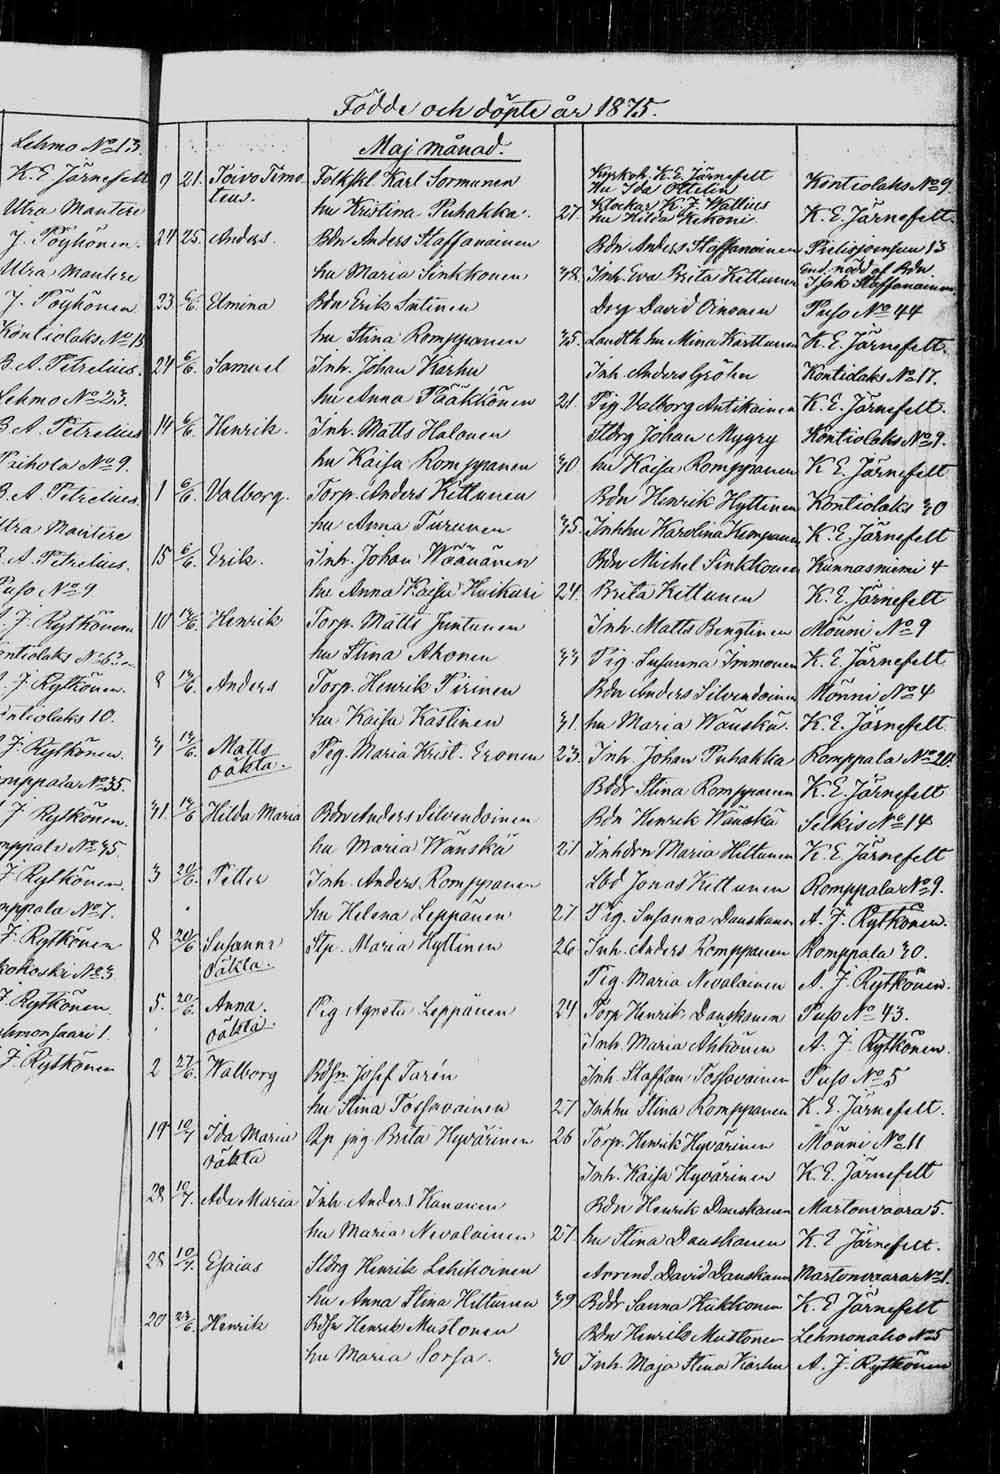 Födde och döpte år 1875.
Lehmo No 13.
K. E. Järnefelt
Utra Mantere
J. Pöyhönen.
Utra Mantere
J. Pöyhönen.
Kontiolaks No 13
B. A. Petrelius.
Lehmo No 23.
B. A. Petrelius
Paihola No 9.
B. A. Petrelius.
Utra Mantere
B. A. Petrelius.
Puso No 9
A. J. Rytkönen
Kontiolaks No
A. J. Rytkönen.
Kontiolaks 10.
A. J. Rytkönen.
Romppala No 35.
A. J. Rytkönen.
Romppala No 35.
A. J. Rytkönen.
Romppala No 7.
A. J. Rytkönen
kokoski No 3
A. J. Rytkönen
Lehmonsaari 1.
A. J. Rytkönen
Maj månad.
9 21. Toivo Timo- Folkskl. Karl Sormunen Kyrkoh. K. E. Järnefelt Kontiolaks No 9
teus. hu Ida Ottelin
hu Kristina Puhakka. 27. Klockar K. F. Wallius K. E. Järnefelt.
hu Hilda Kekoni
24 25. Anders. Bdn Anders Staffanainen Bdn Anders Staffanainen Pielisjoensuu 13
hu Maria Sinkkonen 38. Inh. Eva Brita Kettunen End. nödd af Bdn
Isak Staffanainen
23 6/6. Elmina Bdn Erik Intinen Drg David Oinonen Puso No 44
hu Stina Romppanen 35. Landth. hu Mina Karttunen K. E. Järnefelt.
24 6/6. Samuel Inh. Johan Karhu Inh. Anders Gröhn Kontiolaks No 17.
hu Anna Pääkkönen 21 Pig. Valborg Antikainen K. E. Järnefelt.
14 6/6. Henrik. Inh. Matts Halonen Stdrg Johan Mygry Kontiolaks No 9.
hu Kaisa Romppanen 30 hu Kaisa Romppanen K. E. Järnefelt
1 6/6. Valborg. Torp. Anders Kettunen Bdn Henrik Hyttinen Kontiolaks 30
hu Anna Turunen 35. Inhhu Karolina Kumpunen K. E. Järnefelt
15 6/6. Erik. Inh. Johan Wäänänen Bdn Michel Sinkkonen Kunnasniemi 4
hu Anna Kaisa Huikari 24. Brita Kettunen K. E. Järnefelt
10 13/6. Henrik Torp. Matts Juntunen Inh. Matts Bengtinen Mönni No 9
hu Stina Ahonen 33 Pig. Susanna Immonen K. E. Järnefelt
8 13/6. Anders Torp. Henrik Pirinen Bdn Anders Silvendoinen Mönni No 4
hu Kaisa Kastinen 31. hu Maria Wänskä. K. E. Järnefelt
3 13/6. Matts Pig. Maria Krist. Eronen 23. Inh. Johan Puhakka Romppala No 20.
oäkta. Bddr Stina Romppanen K. E. Järnefelt
31. 13/6 Hilda Maria Bdn Anders Silvendoinen Bdn Henrik Wänskä Selkis No 14
hu Maria Wänskä 21 Inhdrn Maria Hiltunen K. E. Järnefelt
3 20/6. Petter Inh. Anders Romppanen Lbd Jonas Kettunen Romppala No 9.
hu Helena Leppänen 27 Pig. Susanna Danskanen A. J. Rytkönen.
8 20/6 Susanna Stp. Maria Hyttinen 26 Inh. Anders Romppanen Romppala 30.
oäkta. Pig Maria Nevalainen A. J. Rytkönen.
5. 20/6. Anna. Pig Agneta Leppänen 24 Torp Henrik Danskanen Puso No 43.
oäkta. Inh. Maria Ahkönen A. J. Rytkönen.
2 27/6. Walborg Bdsn Josef Tarén Inh. Staffan Tossavainen Puso No 5
hu Stina Tossavainen 27 Inhhu Stina Romppanen K. E. Järnefelt.
19 10/7 Ida Maria Bp pig Brita Hyvärinen 26 Torp. Henrik Hyvärinen Mönni No 11
oäkta Inh. Kaisa Hyvärinen K. E. Järnefelt
28 10/7. Ada Maria Inh Anders Kananen Bdn Henrik Danskanen Martonvaara 5.
hu Maria Nevalainen 27. hu Stina Danskanen K. E. Järnefelt.
28 10/7. Esaias Stdrg Henrik Lehikoinen Arrend. David Danskanen Martonvaara No 1.
hu Anna Stina Hiltunen 39 Bddr Sanna Kukkonen K. E. Järnefelt
20 23/6. Henrik Bdsn Henrik Mustonen Bdn Henrik Mustonen Lehmonaho No 5
hu Maria Sorsa. 30 Inh. Maja Stina Karhu A. J. Rytkönen